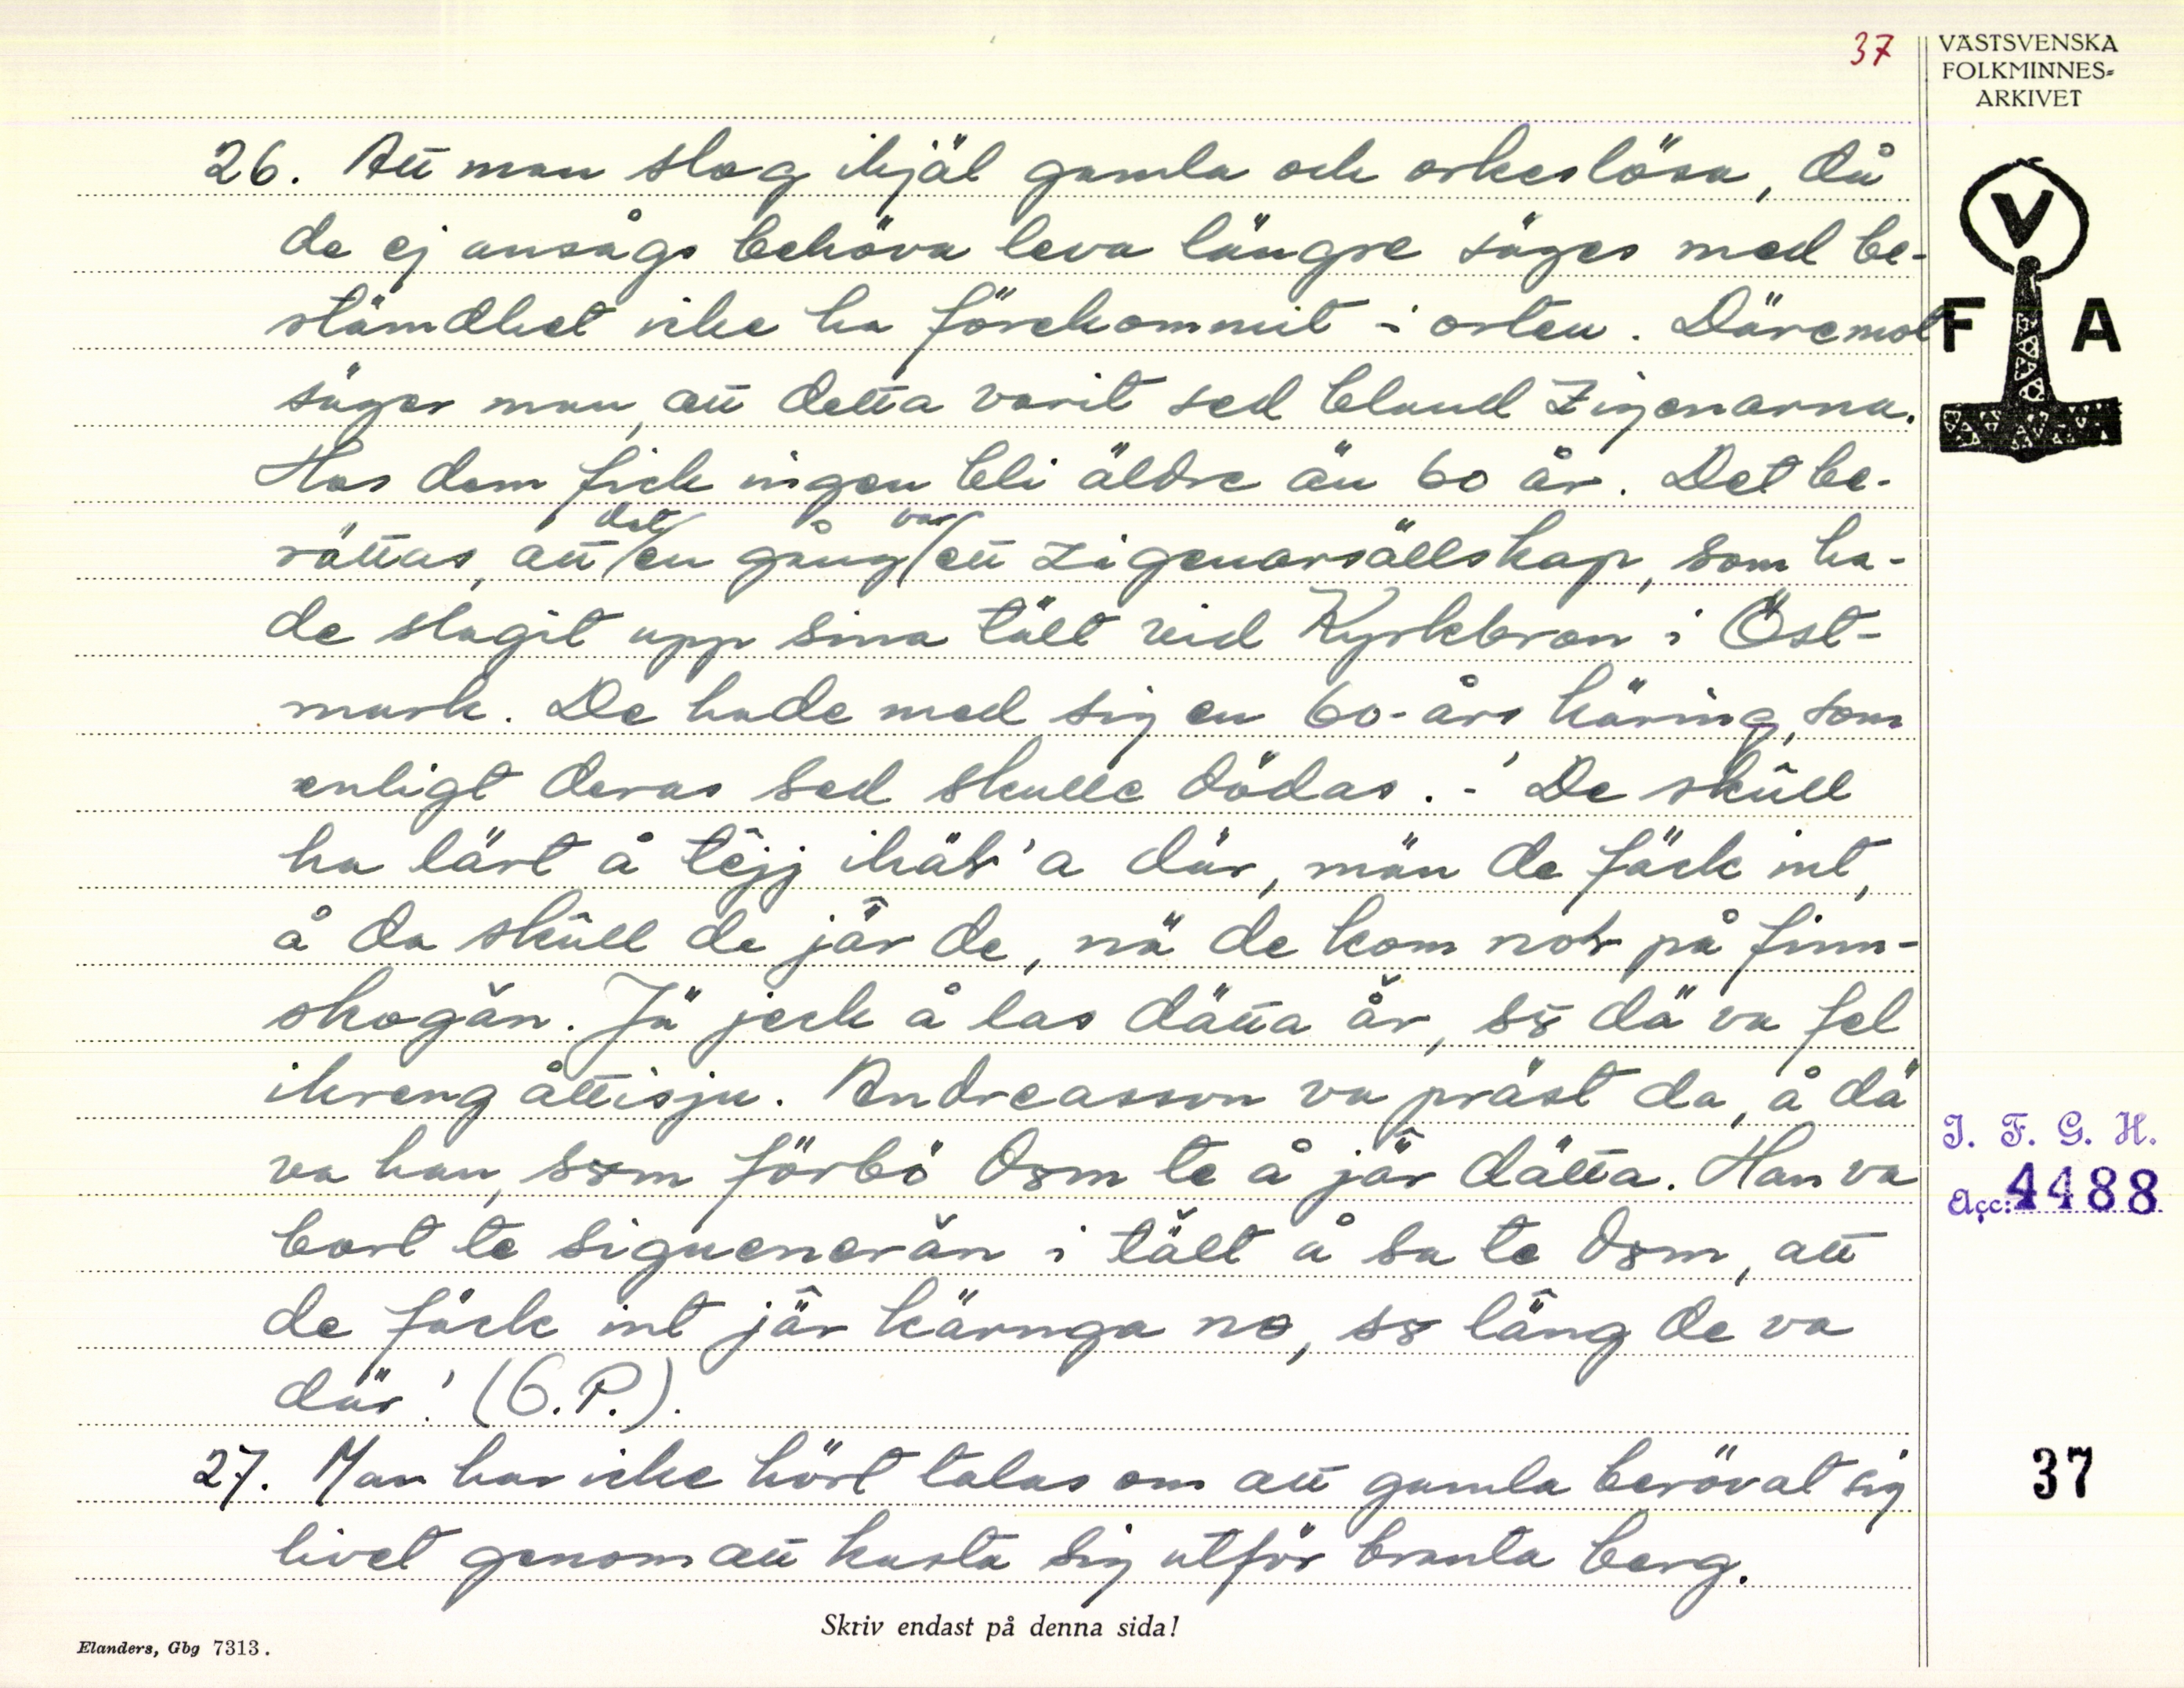 37
VÄSTSVENSKA
FOLKMINNES-
ARKIVET
V
F A
26. Att man slog ihjäl gamla och orkeslösa, då
de ej ansågs behöva leva längre säges med be-
stämdhet icke ha förekommit i orten. Däremot
säger man, att detta varit sed bland zigenarna.
Hos dem fick ingen bli äldre än 60 år. Det be-
rättas, att det en gång var ett zigenarsällskap, som ha-
de slagit upp sina tält vid Kyrkbron i Öst-
mark. De hade med sig en 60-års käring, som
enligt deras sed skulle dödas. - 'De skûll
ha lärt å têjj ihäb'a där, män de fäck int,
å da skûll de jâ̈r de, nä de kom nol på finn-
skogăn. Jä jeck å las dätta år, sɤ dä va fel
ikreng åttisju. Andreasson va präst da, å dä
va han, sɤm förbö dɤm te å jâ̈r dätta. Han va
bort te siguenerăn i tält å sa te dɤm, att
de fäck int jâ̈r kärnga nɵ, sɤ läng de va
där.' (G.P.).
27. Man har icke hört talas om att gamla berövat sig
livet genom att kasta sig utför branta berg.
I. F. G. H.
Acc: 4488
37
Skriv endast på denna sida!
Elanders, Gbg 7313.